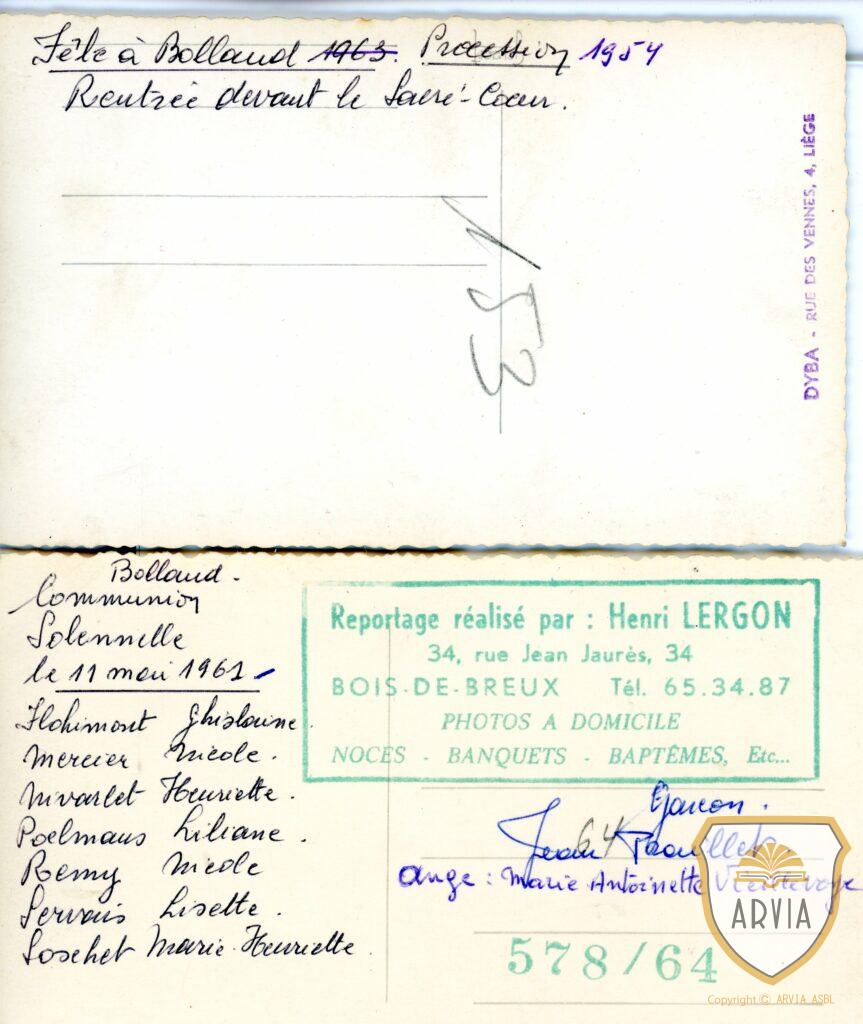 Fête à Bolland 1963. Procession 1954
Rentrée devant le Sacré-Coeur.
153
DYBA - RUE DES VENNES, 4, LIÈGE
Bolland.
Communion
Solennelle
le 11 mai 1961
Flohimont Ghislaine.
Mercier Nicole.
Nivarlet Henriette.
Poelmans Liliane.
Remy Nicole
Servais Lisette.
Soschet Marie-Henriette.
Reportage réalisé par : Henri LERGON
34, rue Jean Jaurès, 34
BOIS-DE-BREUX Tél. 65.34.87
PHOTOS A DOMICILE
NOCES - BANQUETS - BAPTÊMES, Etc...
Garçon.
Jean
64
Ange : Marie Antoinette
578/64
ARVIA
Copyright © ARVIA ASBL